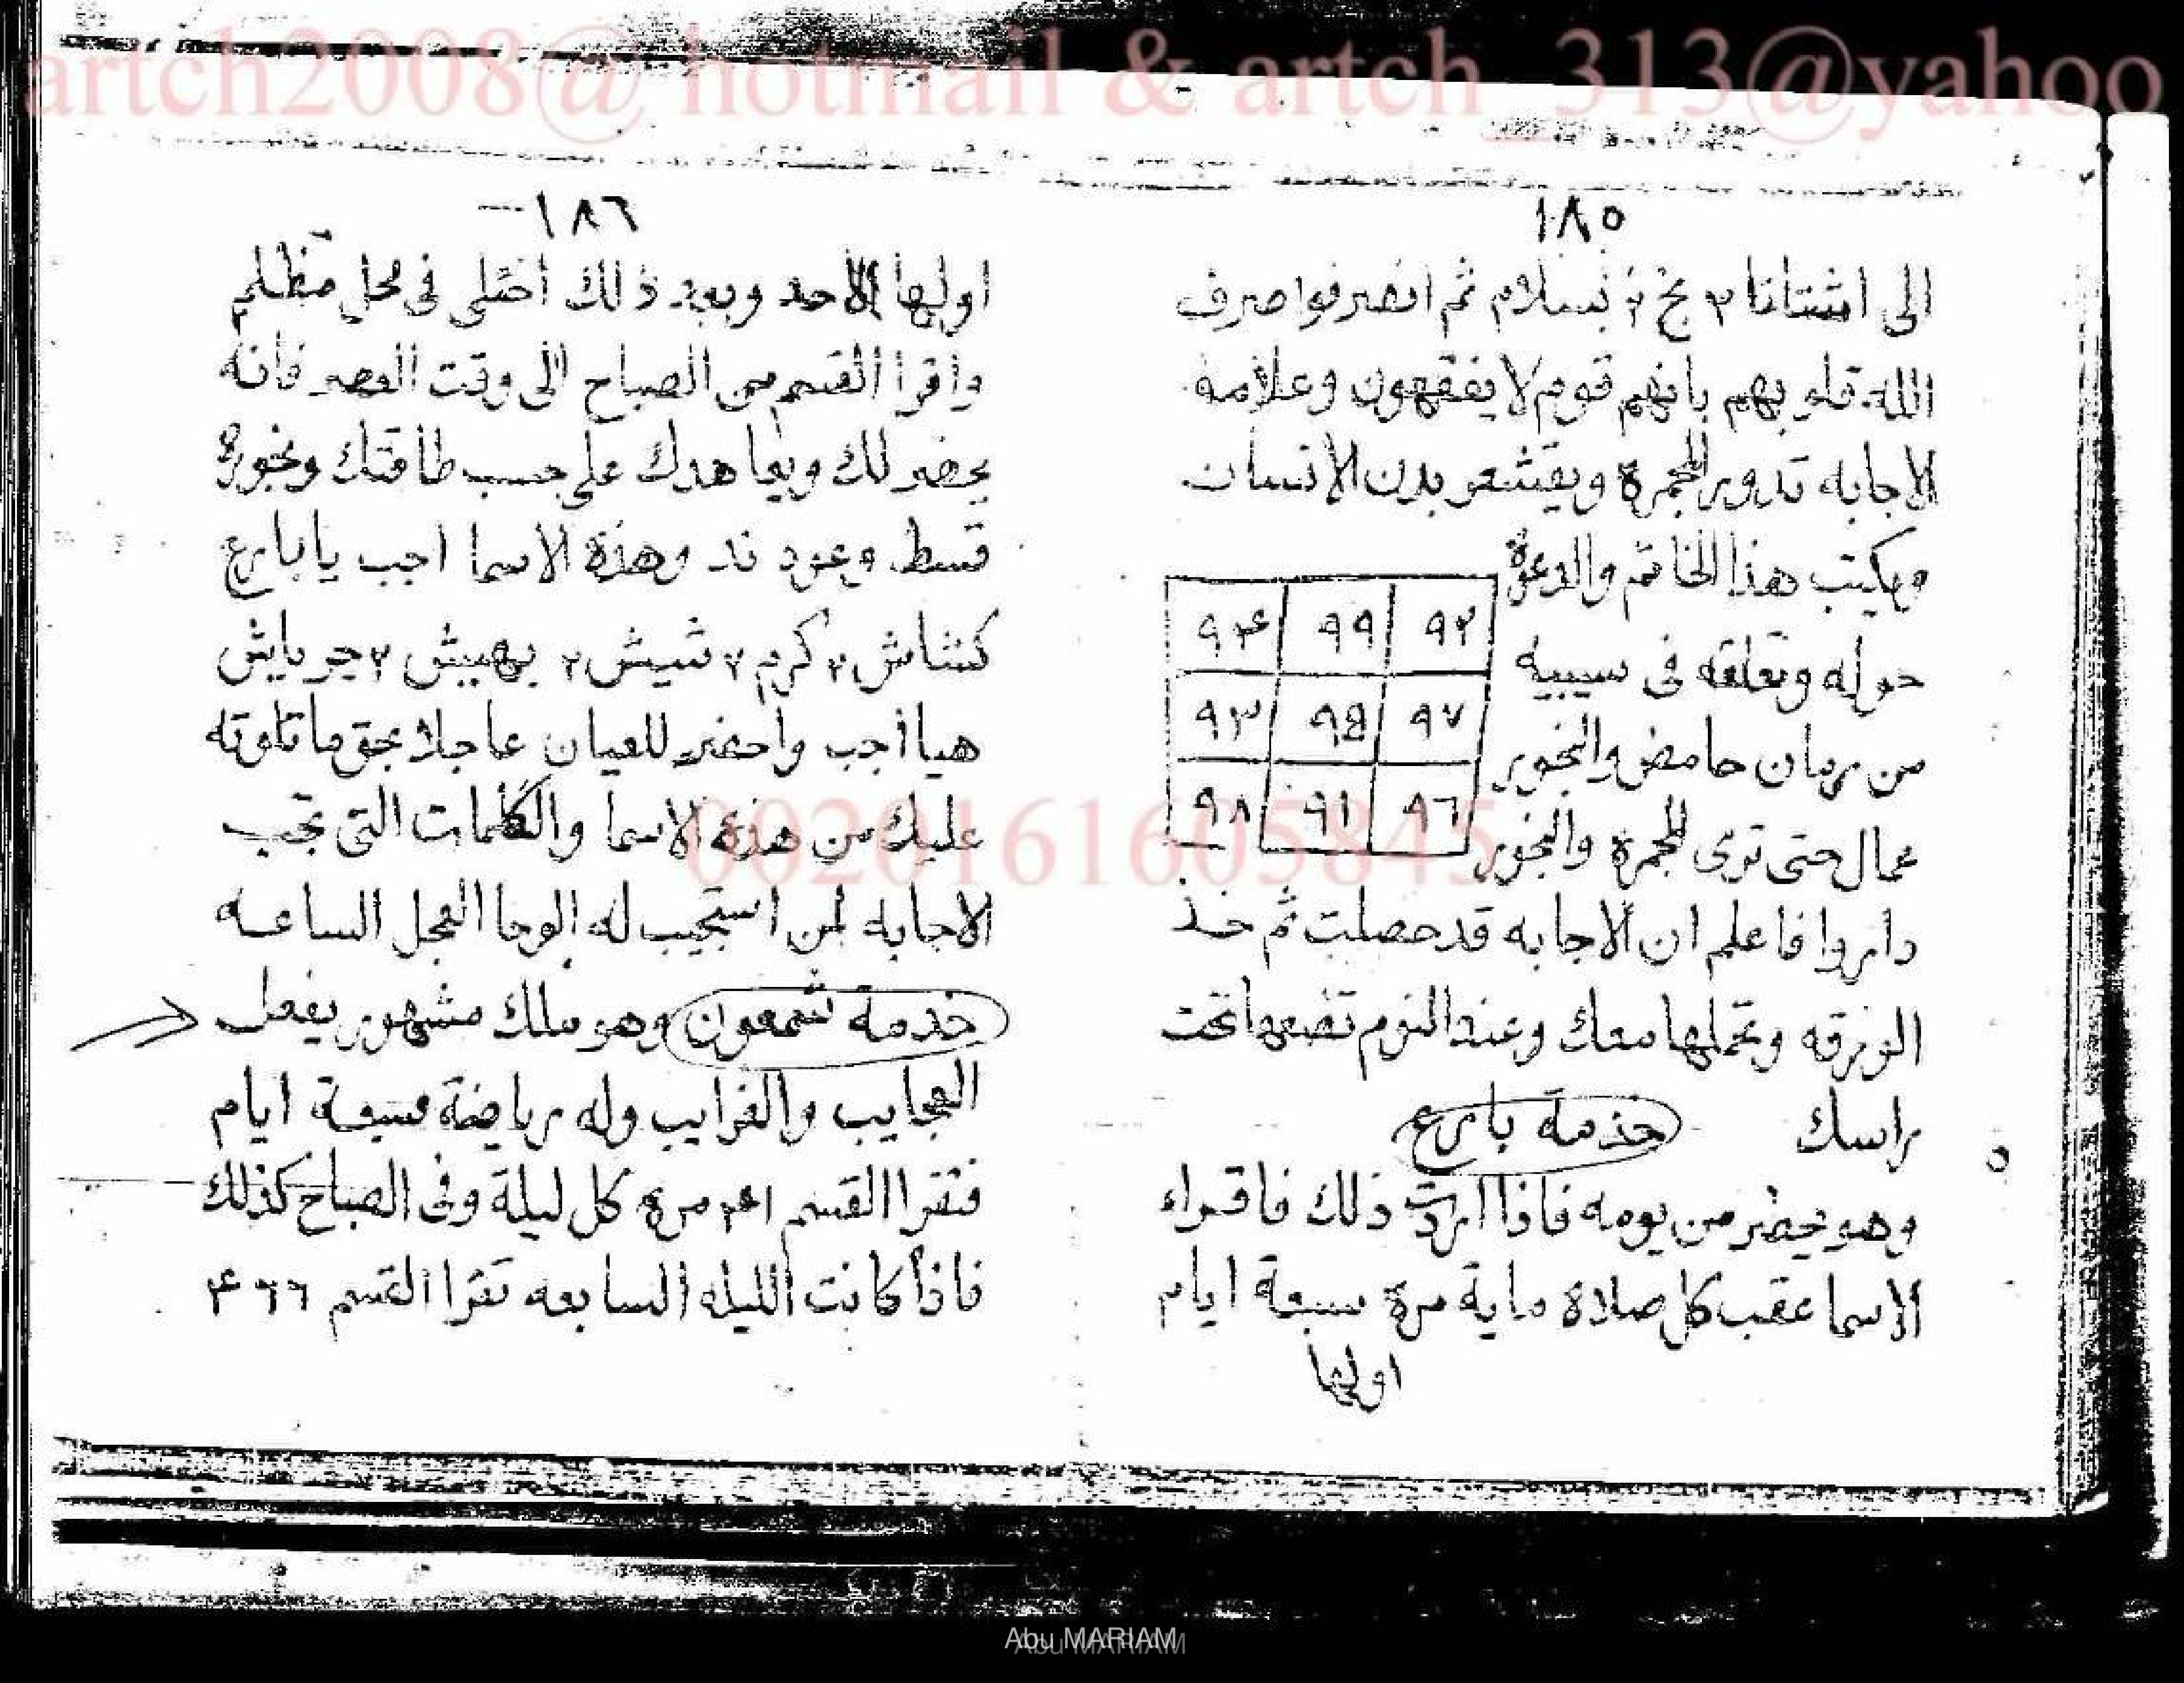 artch2008@ hotmail & artch_313@yahoo
١٨٥
الى اشتاتا ٢ بخ ٢ بسلام ثم انصرفوا صرف
الله قلوبهم بانهم قوم لا يفقهون وعلامة
الاجابه تدوير المجمرة ويقشعر بدن الانسان
ويكتب هذا الخاتم والدعوة
حوله وتعلقه فى سيبيه
من رمان حامض والبخور
عمال حتى ترى المجمره والبخور
٩٤ ٩٩ ٩٢
٩٣ ٩٥ ٩٧
٩٨ ٩١ ٩٦
داروا فاعلم ان الاجابه قد حصلت ثم خذ
الورقه وتحملها معك وعند النوم تضعها تحت
راسك خدمة بارع
وهو يحضر من يومه فاذا اردت ذلك فاقراء
الاسما عقب كل صلاة ماية مرة سبعة ايام
اولها
١٨٦
اولها الاحد وبعد ذلك اختلى فى محل مظلم
واقرا القسم من الصباح الى وقت العصر فانه
يحضر لك ويعاهدك على حسب طاقتك وبخوره
قسط وعود ند وهذه الاسما اجب يا بارع
كشاش ٢ كرم ٢ شيش ٢ بهييش ٢ جرياش
هيا اجب واحضر للعيان عاجلا بحق ما تلوته
عليك من هذه الاسما والكلمات التى تجب
الاجابه لمن استجيب له الوحا العجل الساعه
خدمة شمعون وهو ملك مشهور يفعل
العجايب والغرايب وله رياضة سبعة ايام
فتقرا القسم ٤١ مرة كل ليلة وفى الصباح كذلك
فاذا كانت الليله السابعه تقرا القسم ٤٦٦
0020161605845
Abu MARIAM